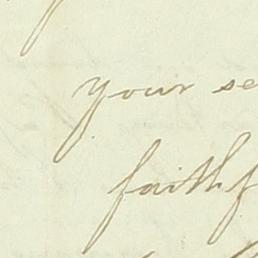 your se
faithf